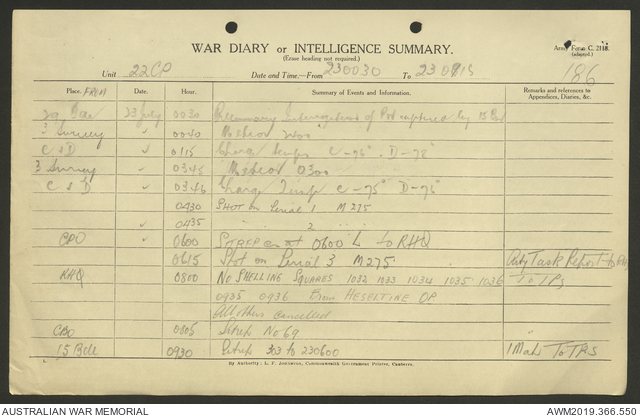 Army Form C. 2118.
(adapted.)
WAR DIARY or INTELLIGENCE SUMMARY.
(Erase heading not required.)
186
Unit 22 CP Date and Time.—From 230030 To
Place. FROM Date. Hour. Summary of Events and Information. Remarks and references to Appendices, Diaries, &c.
29 Bde 23 July 0030 Preliminary Interrogation of PW captured by 15
3 Survey " 0040 Meteor
C & D " 0115 Charge Temps C -75° D -78°
3 Survey " 0345 Meteor 0300
C & D " 0346 Charge Temp C -75° D -75°
0430 SHOT on Serial 1 M 275
" 0435 " " 2 "
CPO " 0600 SITREP as at 0600 L to RHQ
0615 Shot on Serial 3 M275 Arty Task Report to
RHQ 0800 NO SHELLING SQUARES 1032 1033 1034 1035 1036 To TPs
0935 0936 From HESELTINE OP
All others cancelled
0805 Sitrep No 69 "
15 Bde 0930 Sitrep 303 to 230600 1 Mah To TPS
By Authority: L. F. Johnston, Commonwealth Government Printer, Canberra.
AUSTRALIAN WAR MEMORIAL
AWM2019.366.550